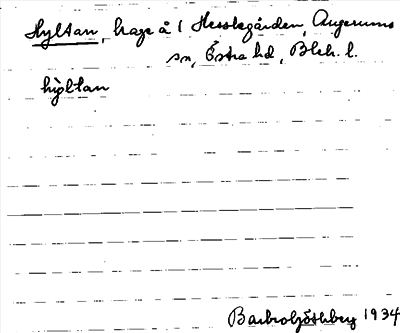 Hyltan, hage å 1 Hesslegården, Augerums
sn, Östra hd, Blek. l.
hỳltan
Barbro Göthberg 1934